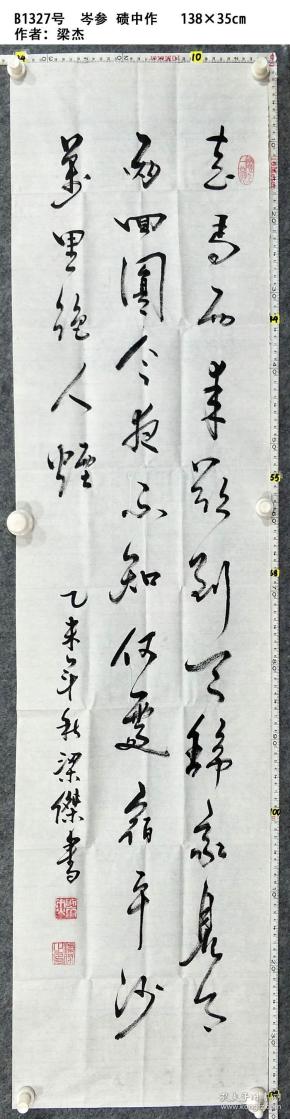 B1327号 岑参 碛中作 138×35cm
作者：梁杰
走馬西來欲到天辭家見月
兩回圓今夜不知何處宿平沙
萬里絕人煙
乙未年秋梁傑書